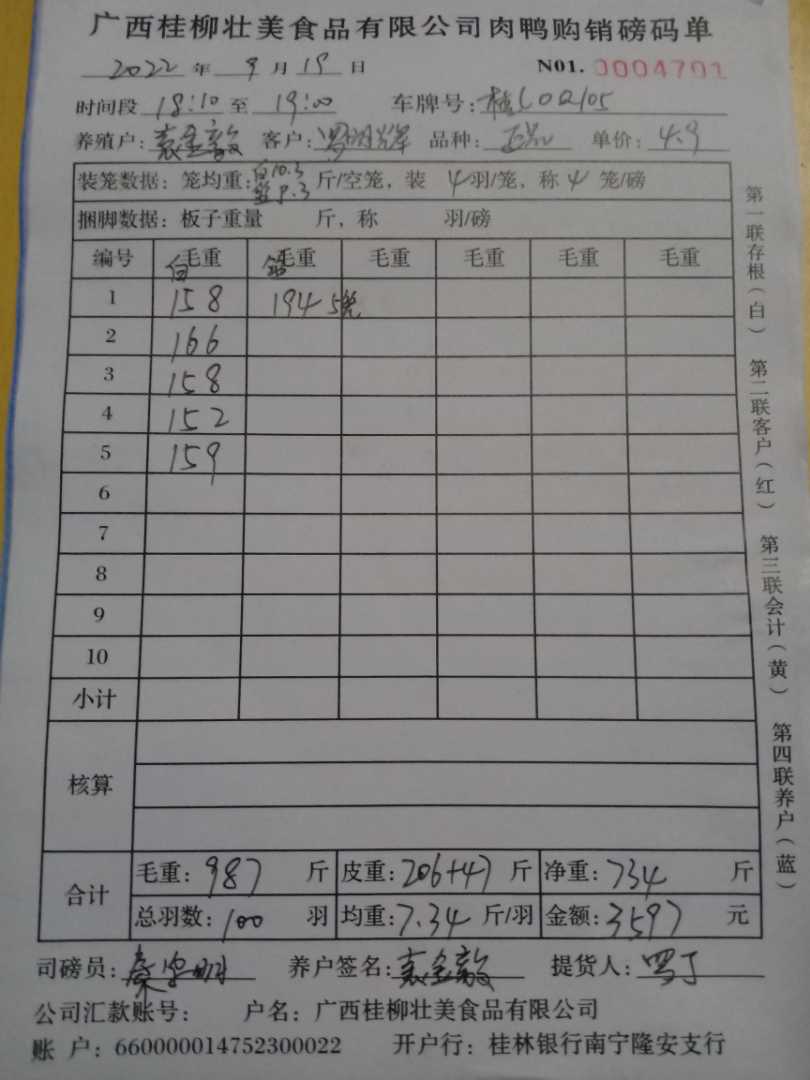 广西桂柳壮美食品有限公司肉鸭购销磅码单
2022 年 9 月 19 日 N01. 0004701
时间段 18:10 至 19:00 车牌号：桂L0Q105
养殖户：袁圣毅 客户： 品种：正品 单价：4.9
装笼数据：笼均重：白10.3 9.3 斤/空笼，装 4 羽/笼，称 4 笼/磅
捆脚数据：板子重量 斤，称 羽/磅
编号 白 毛重 毛重 毛重 毛重 毛重 毛重
1 158 194 5笼
2 166
3 158
4 152
5 159
6
7
8
9
10
小计
核算
合计 毛重：987 斤 皮重：206+47 斤 净重：734 斤
总羽数：100 羽 均重：7.34 斤/羽 金额：3597 元
司磅员： 养户签名：袁圣毅 提货人：
公司汇款账号： 户名：广西桂柳壮美食品有限公司
账 户：660000014752300022 开户行：桂林银行南宁隆安支行
第一联存根（白） 第二联客户（红） 第三联会计（黄） 第四联养户（蓝）